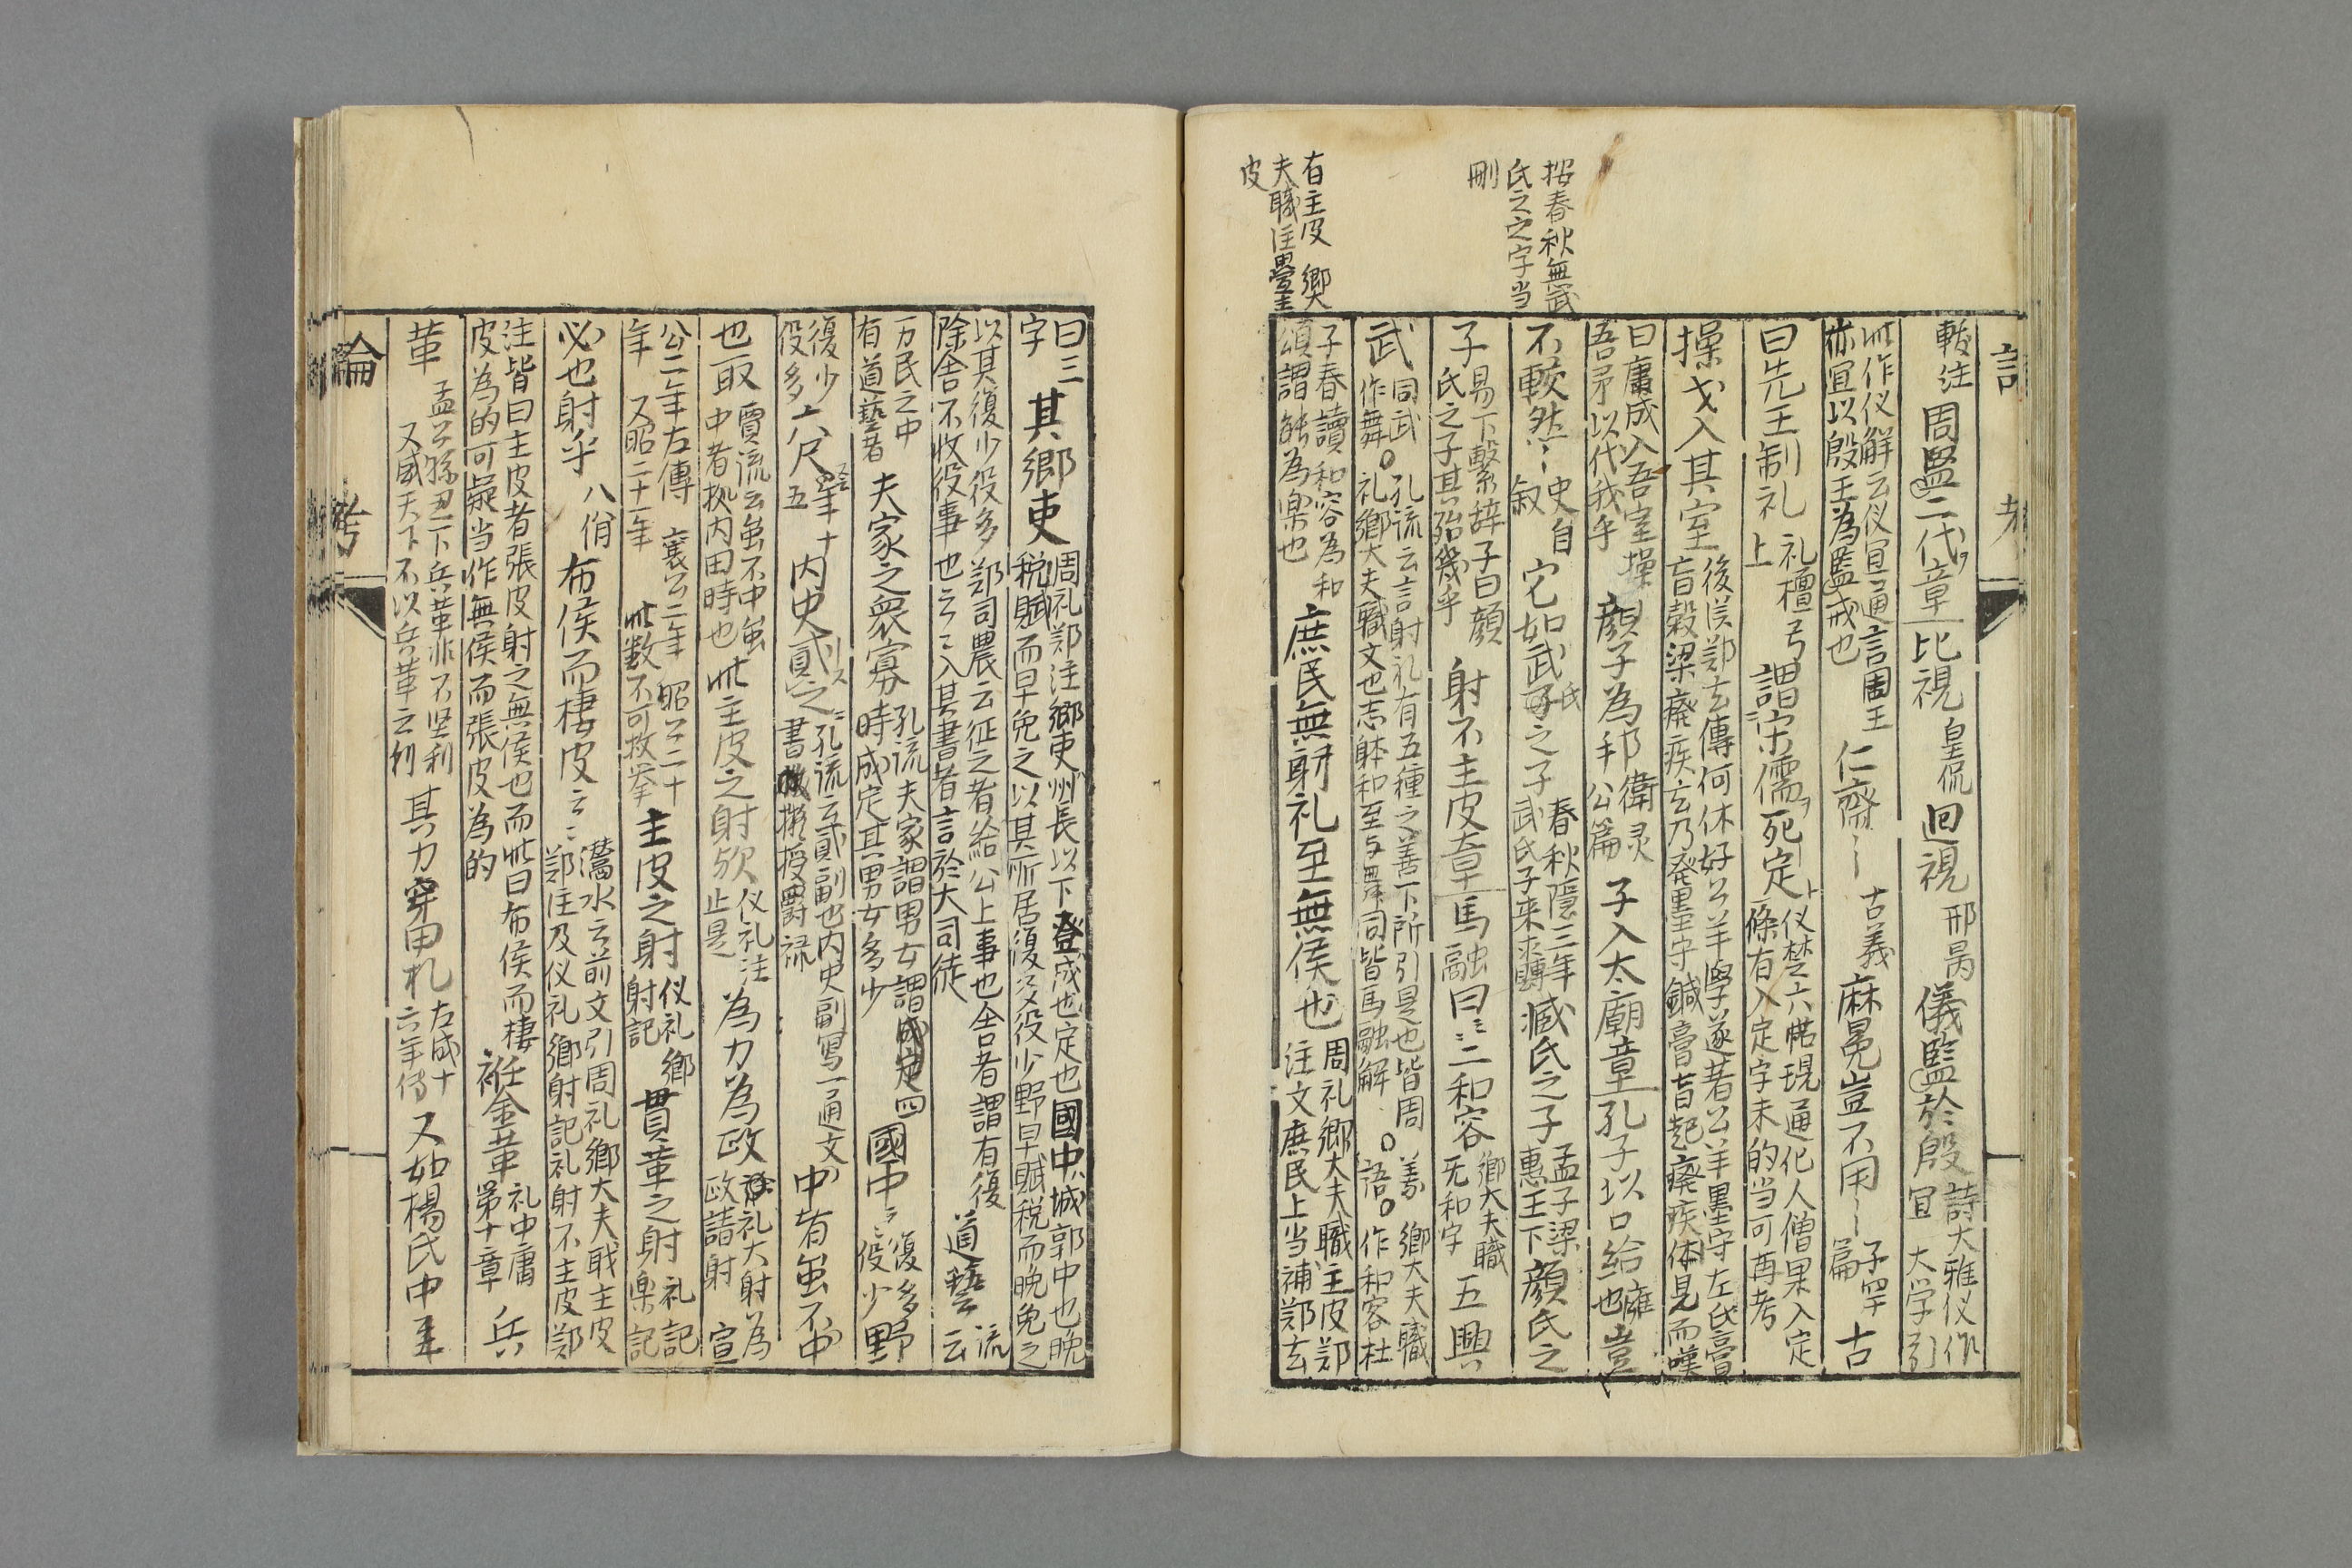 按春秋無武
氏之之字当
刪
有主皮 鄉大
夫職注疊主
皮
軷注 周監二代章 比視 皇侃 回視 邢昺 儀監於殷 詩大雅仪作宜 大学引
此作仪解云仪宜也 言周王亦宜以殷王為監戒也 仁齋〻 古義 麻冕豈不用〻 子罕篇 古
曰先王制礼 礼檀弓上 謂宋儒 死定 仪楚六帖現通化人僧果入定一條有入定字未的当可再考
操戈入其室 後漢鄭玄傳何休好公羊學遂著公羊墨守左氏膏肓穀梁廢疾玄乃発墨守鍼膏肓起廢疾休見而嘆
曰康成入吾室操吾矛以代我乎 顔子為邦 衛灵公篇 子入太廟章 孔子以口給 雍也 豈
不較然〻 史自叙 它如武氏子之子 春秋隠三年武氏子来求賻 臧氏之子 孟子梁惠王下 顔氏之
子 易下繫辞子曰顔氏之子其殆幾乎 射不主皮章 馬融曰〻 二和容 鄉大夫職无和字 五興
武 同武 孔流云言射礼有五種之善下所引是也皆周作舞○礼鄉大夫職文也志躰和至与舞同皆馬融解○ 義 鄉大夫職語○作和容杜
子春讀和容為和頌謂能為楽也 庶民無射礼至無侯也 周礼鄉大夫職主皮鄭注文庶民上当補鄭玄
曰三字 其鄉吏 周礼鄭注鄉吏州長以下登成也定也國中城郭中也晩税賦而早免之以其所居復多役少野早賦税而晩免之
以其復少役多 鄭司農云征之者給公上事也舍者謂有復除舍不收役事也云〻入其書者言於大司徒 道藝 流云
万民之中有道藝者 夫家之衆寡 孔流夫家謂男女謂四時成定其男女多少 國中〻 復多役少 野
復少役多 六尺 年十五 内史貳之 孔流云貳副也内史副写一通文書擬授爵禄 中有虽不中
也取 賈流云虽不中虽中者抝内田時也 此主皮之射欤 仪礼注止是 為力為政 礼大射為政請射 宣
公二年左傳 襄公二年 昭公二十年 又昭二十一年 此数不可枚挙 主皮之射 仪礼鄉射記 貫革之射 礼記楽記
必也射乎 八佾 布侯而棲皮〻 灊水云前文引周礼鄉大夫職主皮鄭注及仪礼鄉射記礼射不主皮鄭
注皆曰主皮者張皮射之無侯也而此曰布侯而棲皮為的可疑当作無侯而張皮為的 衽金革 礼中庸第十章 兵
革 孟公孫丑下兵革非不坚利 又威天下不以兵革之利 其力穿甲札 左成十六年傳 又如楊氏中年
論 考